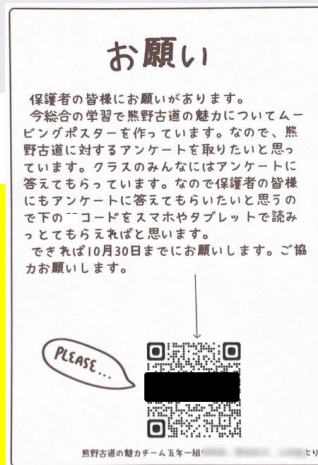 お願い
保護者の皆様にお願いがあります。
今総合の学習で熊野古道の魅力についてムー
ビングポスターを作っています。なので、熊
野古道に対するアンケートを取りたいと思っ
ています。クラスのみんなにはアンケートに
答えてもらっています。なので保護者の皆様
にもアンケートに答えてもらいたいと思うの
で下の コードをスマホやタブレットで読み
っとてもらえればと思います。
できれば10月30日までにお願いします。ご協
力お願いします。
PLEASE...
熊野古道の魅力チーム五年一組
より